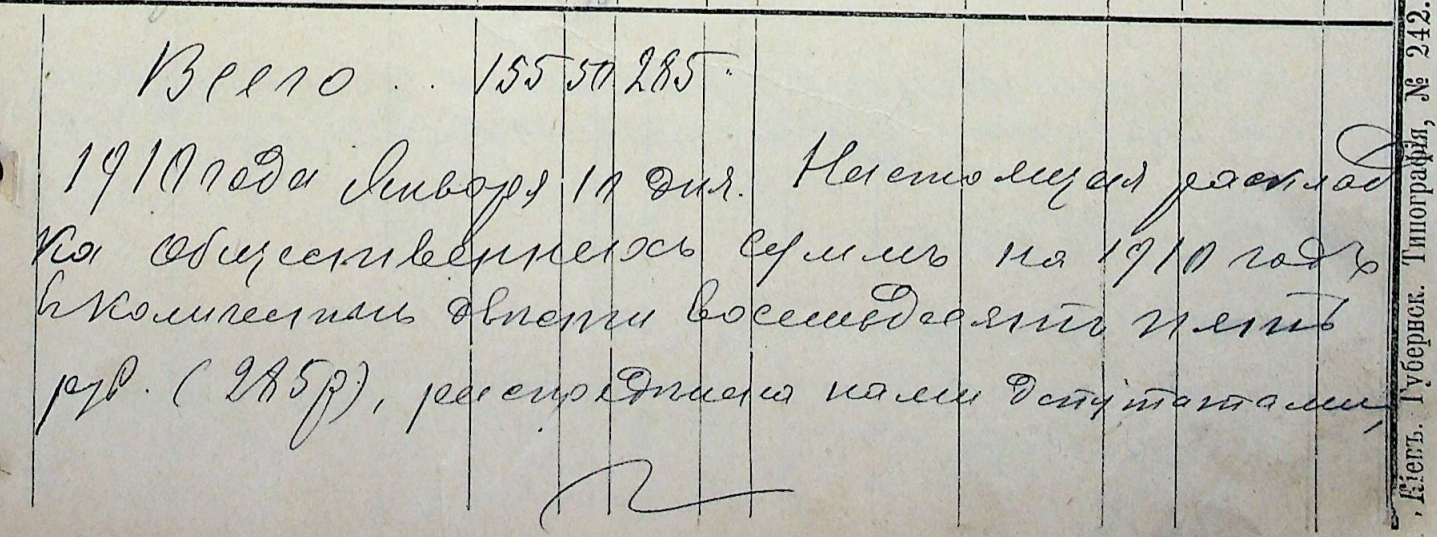 Всего . . 155 50 285 .
1910 года Января 10 дня. Настоящая расклад
ка общественныхъ суммъ на 1910 годъ
въ количествѣ двѣсти восемьдесятъ пять
руб. (285 р.), распредѣлена нами депутатами,
Кіевъ. Губернск. Типографія, № 242.